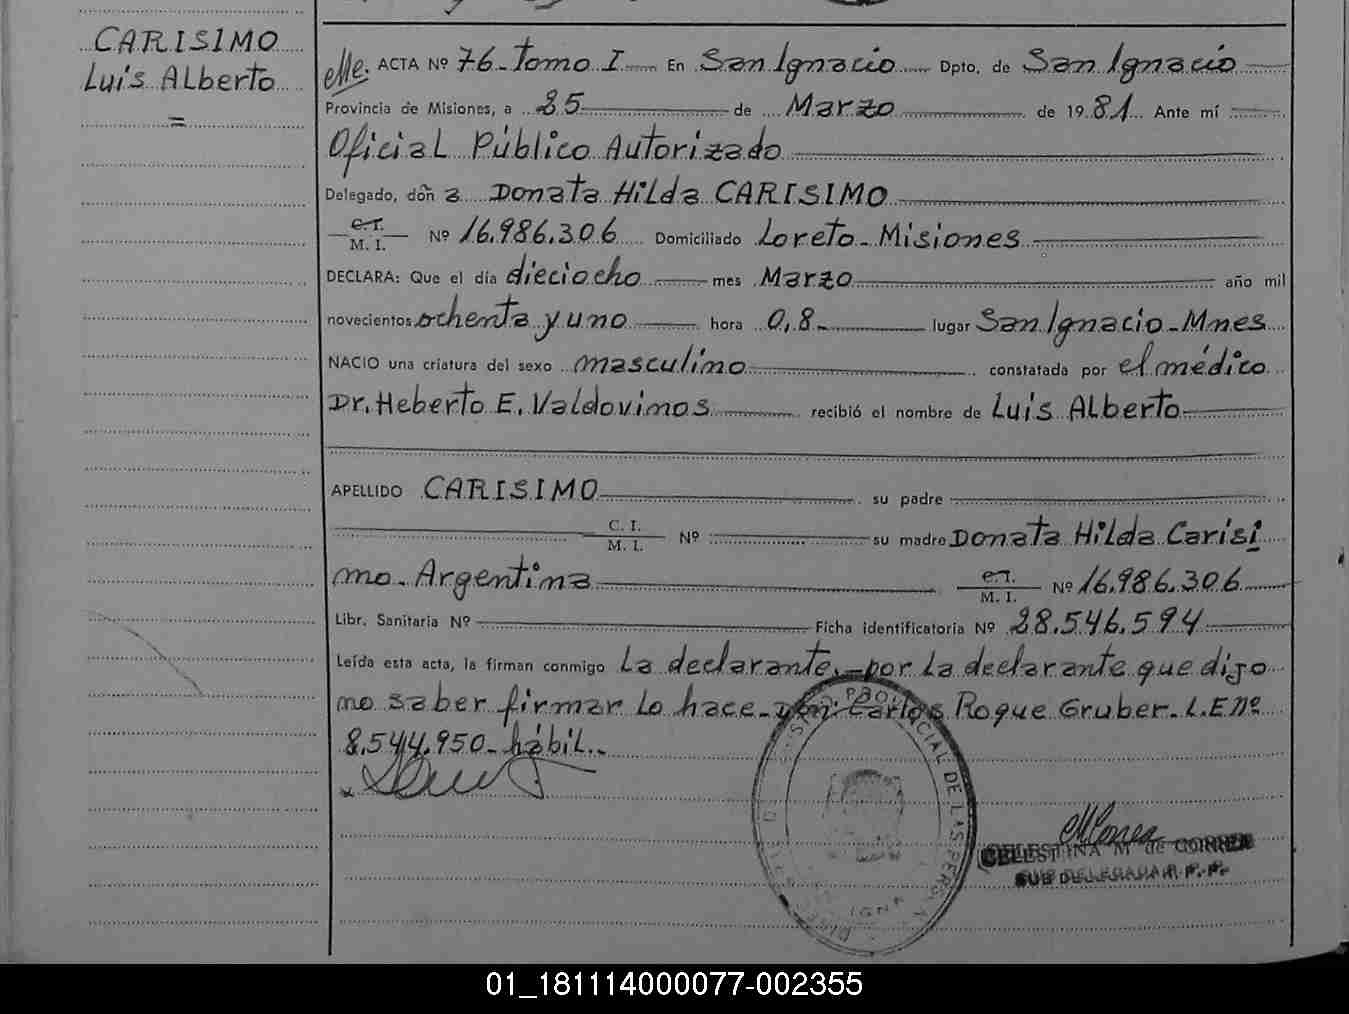 CARISIMO
Luis ALberto
=
ACTA Nº 76-Tomo I En San Ignacio Dpto. de San Ignacio
Provincia de Misiones, a 25 de Marzo de 1981. Ante mí
Oficial Público Autorizado
Delegado, doña Donata Hilda CARISIMO
C.I.
M. I. Nº 16.986.306 Domiciliado Loreto-Misiones
DECLARA: Que el día dieciocho mes Marzo año mil
novecientos ochenta y uno hora 0,8- lugar San Ignacio-Mnes
NACIO una criatura del sexo masculino constatada por el médico
Dr. Heberto E. Valdovinos recibió el nombre de Luis ALberto
APELLIDO CARISIMO su padre
C. I.
M. I. Nº su madre Donata Hilda Carisi
mo. Argentina C.I.
M. I. Nº 16.986.306
Libr. Sanitaria Nº Ficha identificatoria Nº 28.546.594
Leída esta acta, la firman conmigo La declarante.-por La declarante que dijo
no saber firmar Lo hace-don: Carlos Roque Gruber-L.E nº
8.544.950-hábil.-
PROVINCIAL DE LAS PERSON
CELESTINA M de CORREA
SUB DELEGADA R. P. P.
01_181114000077-002355